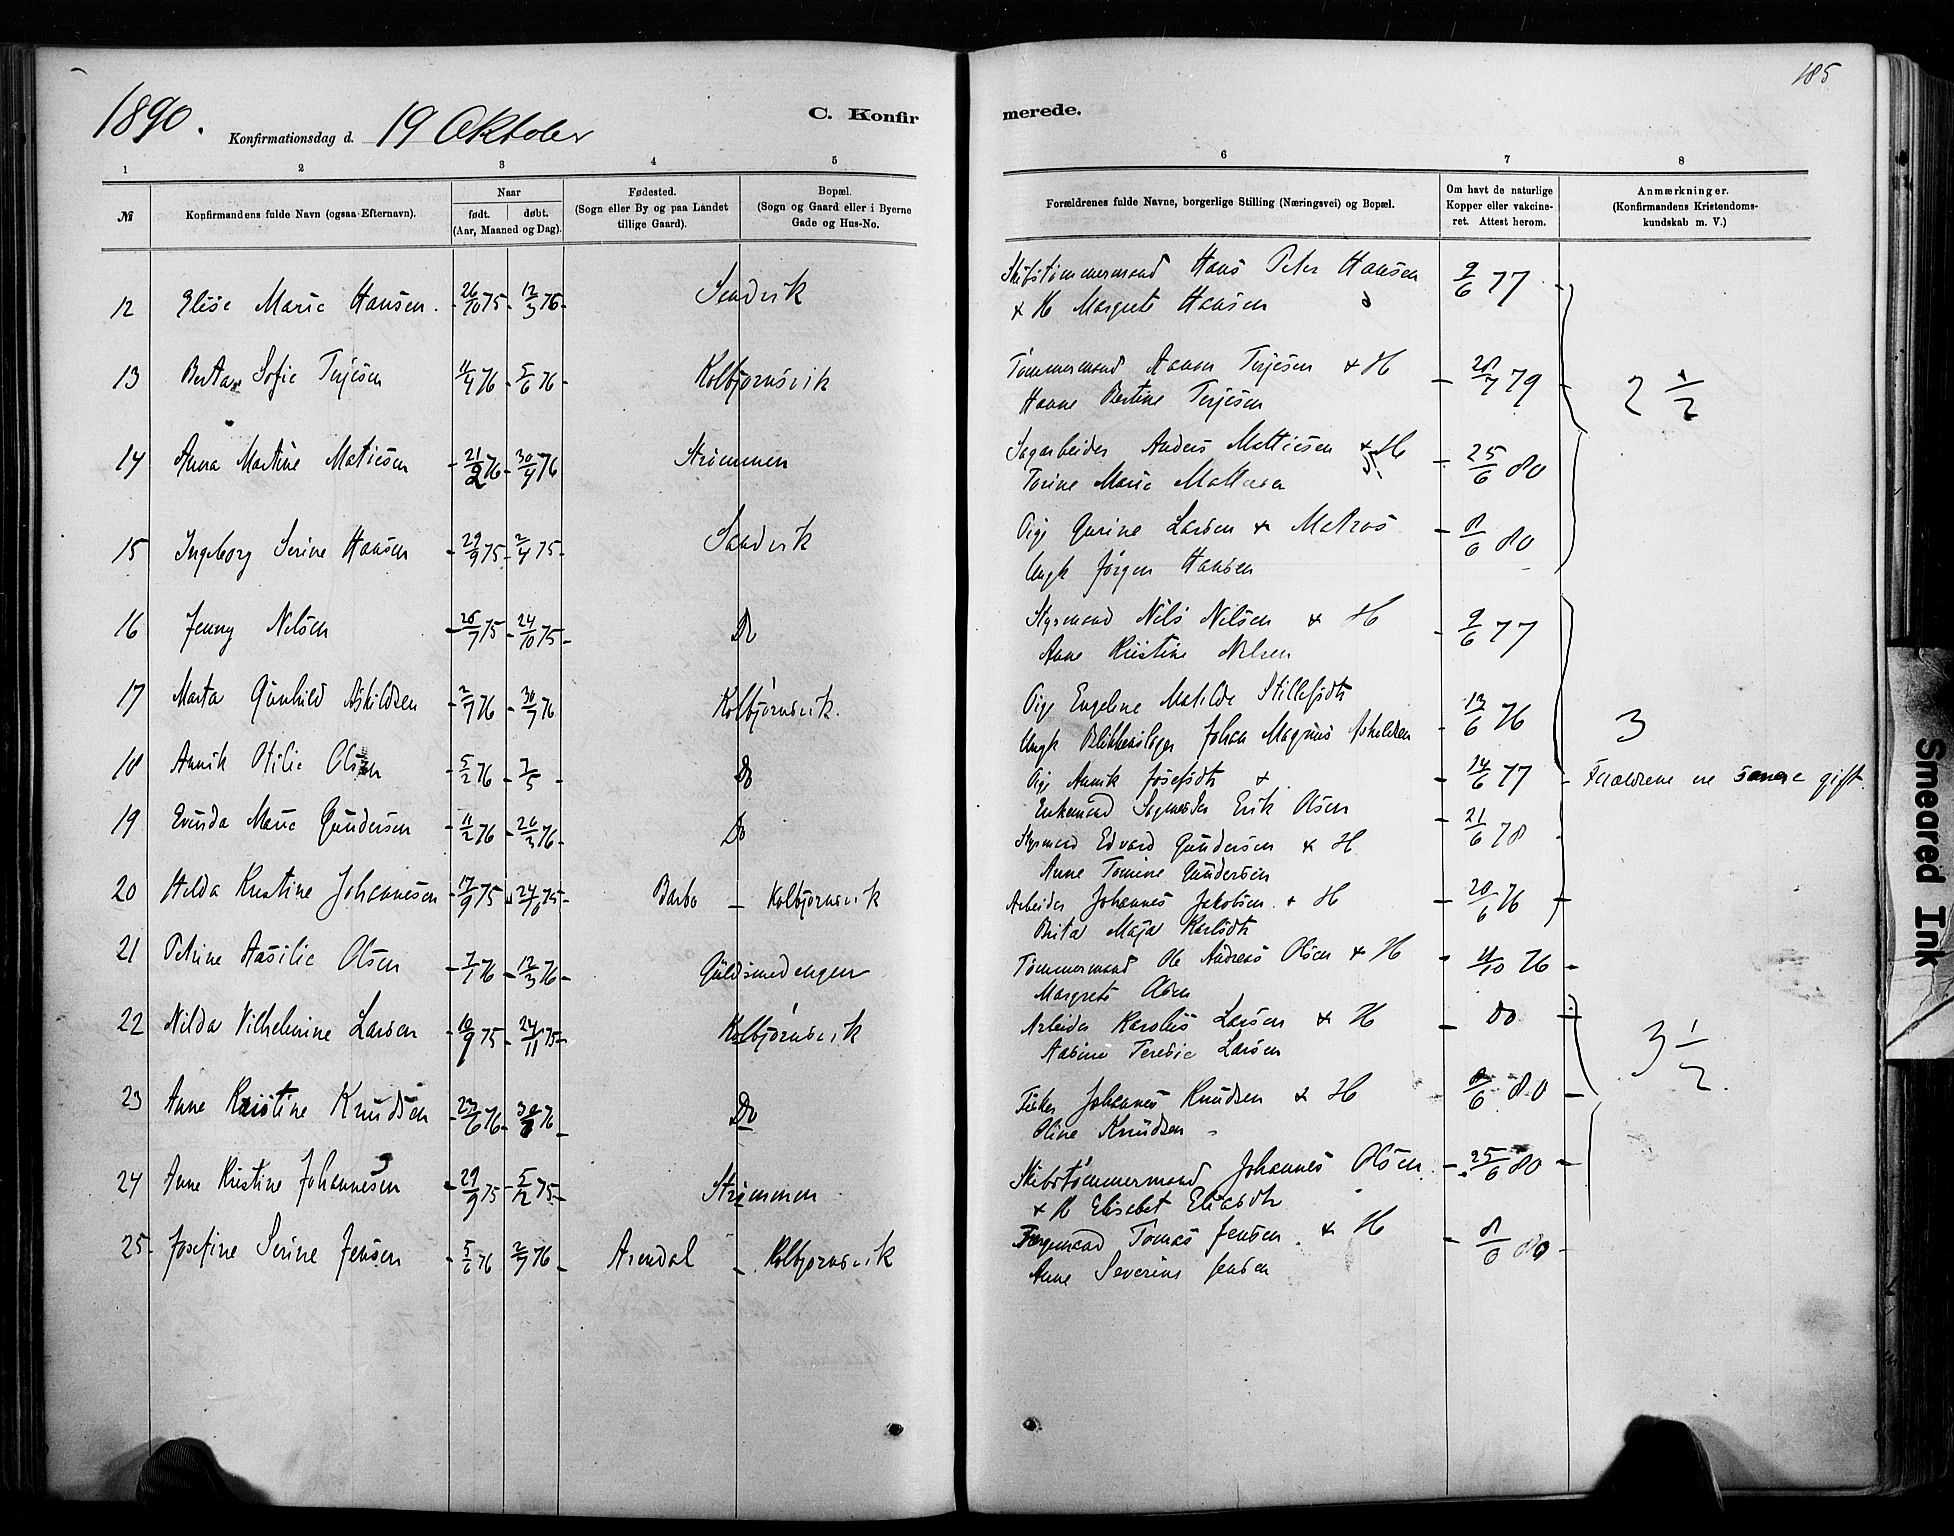 185
1890. Konfirmationsdag d. 19 Oktober C. Konfir merede.
1 2 3 4 5 6 7 8
№ Konfirmandens fulde Navn (ogsaa Efternavn). Naar født. døbt. (Aar, Maaned og Dag). Fødested. (Sogn eller By og paa Landet tillige Gaard). Bopæl. (Sogn og Gaard eller i Byerne Gade og Hus-No.
Forældrenes fulde Navne, borgerlige Stilling (Næringsvei) og Bopæl. Om havt de naturlige Kopper eller vakcineret. Attest herom. Anmærkninger. (Konfirmandens Kristendomskundskab m. V.)
12 Elise Marie Hansen. 26/10 75 12/3 76 Sandvik Skibstømmermand Hans Peter Hansen 9/6 77
+ H Margrete Hansen
13 Berta Sofie Terjesen 11/4 76 5/6 76 Kolbjørnsvik Tømmermand Aanon Terjesen + H 28/7 79 2 1/2
Hanne Bertine Terjesen
14 Anna Martine Matiesen 21/2 76 30/4 76 Strømmen Sagarbeider Anders Mattiesen + H 25/6 80
Torine Marie Mattiesen
15 Ingeborg Serine Hansen 29/9 75 2/4 75 Sandvik Pige Gurine Larsen + Matros 8/6 80
Ungk Jørgen Hansen
16 Jenny Nilsen 28/7 75 24/10 75 Do Styrmand Nils Nilsen + H 9/6 77
Anne Kristine Nilsen
17 Marta Gunhild Askildsen 2/7 76 30/7 76 Kolbjørnsvik. Pige Engeline Matilde Stillefsdtr 13/6 76 3
Ungk Blikkenslager Johan Magnus Askildsen
18 Annik Otilie Olsen 5/2 76 7/5 Do Pige Annik Josefsdtr + 14/6 77 Forældrene ere senere gift.
Enkemand Sagmester Erik Olsen
19 Evinda Marie Gundersen 11/2 76 26/3 76 Do Styrmand Edvard Gundersen + H 21/6 78
Anne Tomine Gundersen
20 Hilda Kristine Johannesen 17/9 75 24/10 75 Barbo Kolbjørnsvik Arbeider Johannes Jakobsen + H 20/6 76
Brita Maja Karlsdtr
21 Petrine Aasilie Olsen 7/1 76 12/3 76 Guldsmedengen Tømmermand Ole Andreas Olsen + H 11/10 76
Margrete Olsen
22 Nilda Vilhelmine Larsen 10/9 75 24/11 75 Kolbjørnsvik Arbeider Karolius Larsen + H Do 3 1/2
Aasine Teresie Larsen
23 Anne Kristine Knudsen 23/6 76 30/7 76 Do Fisker Johannes Knudsen + H 8/6 80
Oline Knudsen
24 Anne Kristine Johannesen 29/9 75 5/12 75 Strømmen Skibstømmermand Johannes Olsen 25/6 80
+ H Elisabet Eliasdtr
25 Josefine Serine Jensen 5/6 76 2/7 76 Arendal Kolbjørnsvik Tomas Jensen + H 8/6 80
Anne Severine Jensen
Smeared Ink